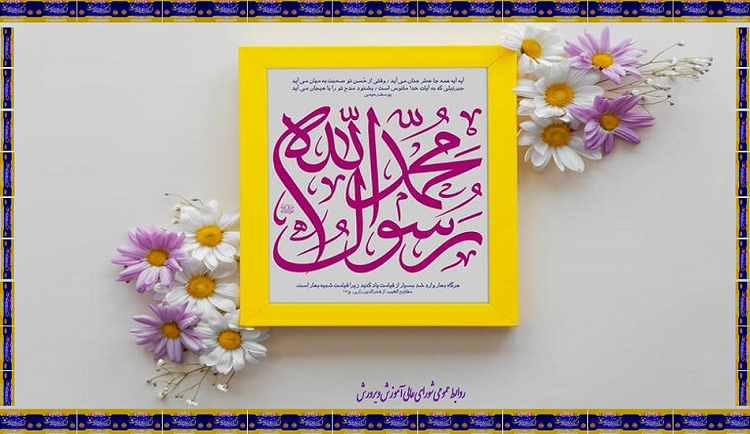 آیه آیه همه جا عطر جنان می آید / وقتی از حُسن تو صحبت به میان می آید
جبرئیلی که به آیات خدا مانوس است / بشنود مدح تو را با هیجان می آید
یوسف رحیمی
محمّد
رسول الله
هرگاه بهار وارد شد بسیار از قیامت یاد کنید زیرا قیامت شبیه بهار است.
مفاتیح الغیب، از فخرالدین رازی، ج۱۷
روابط عمومی شورای عالی آموزش و پرورش